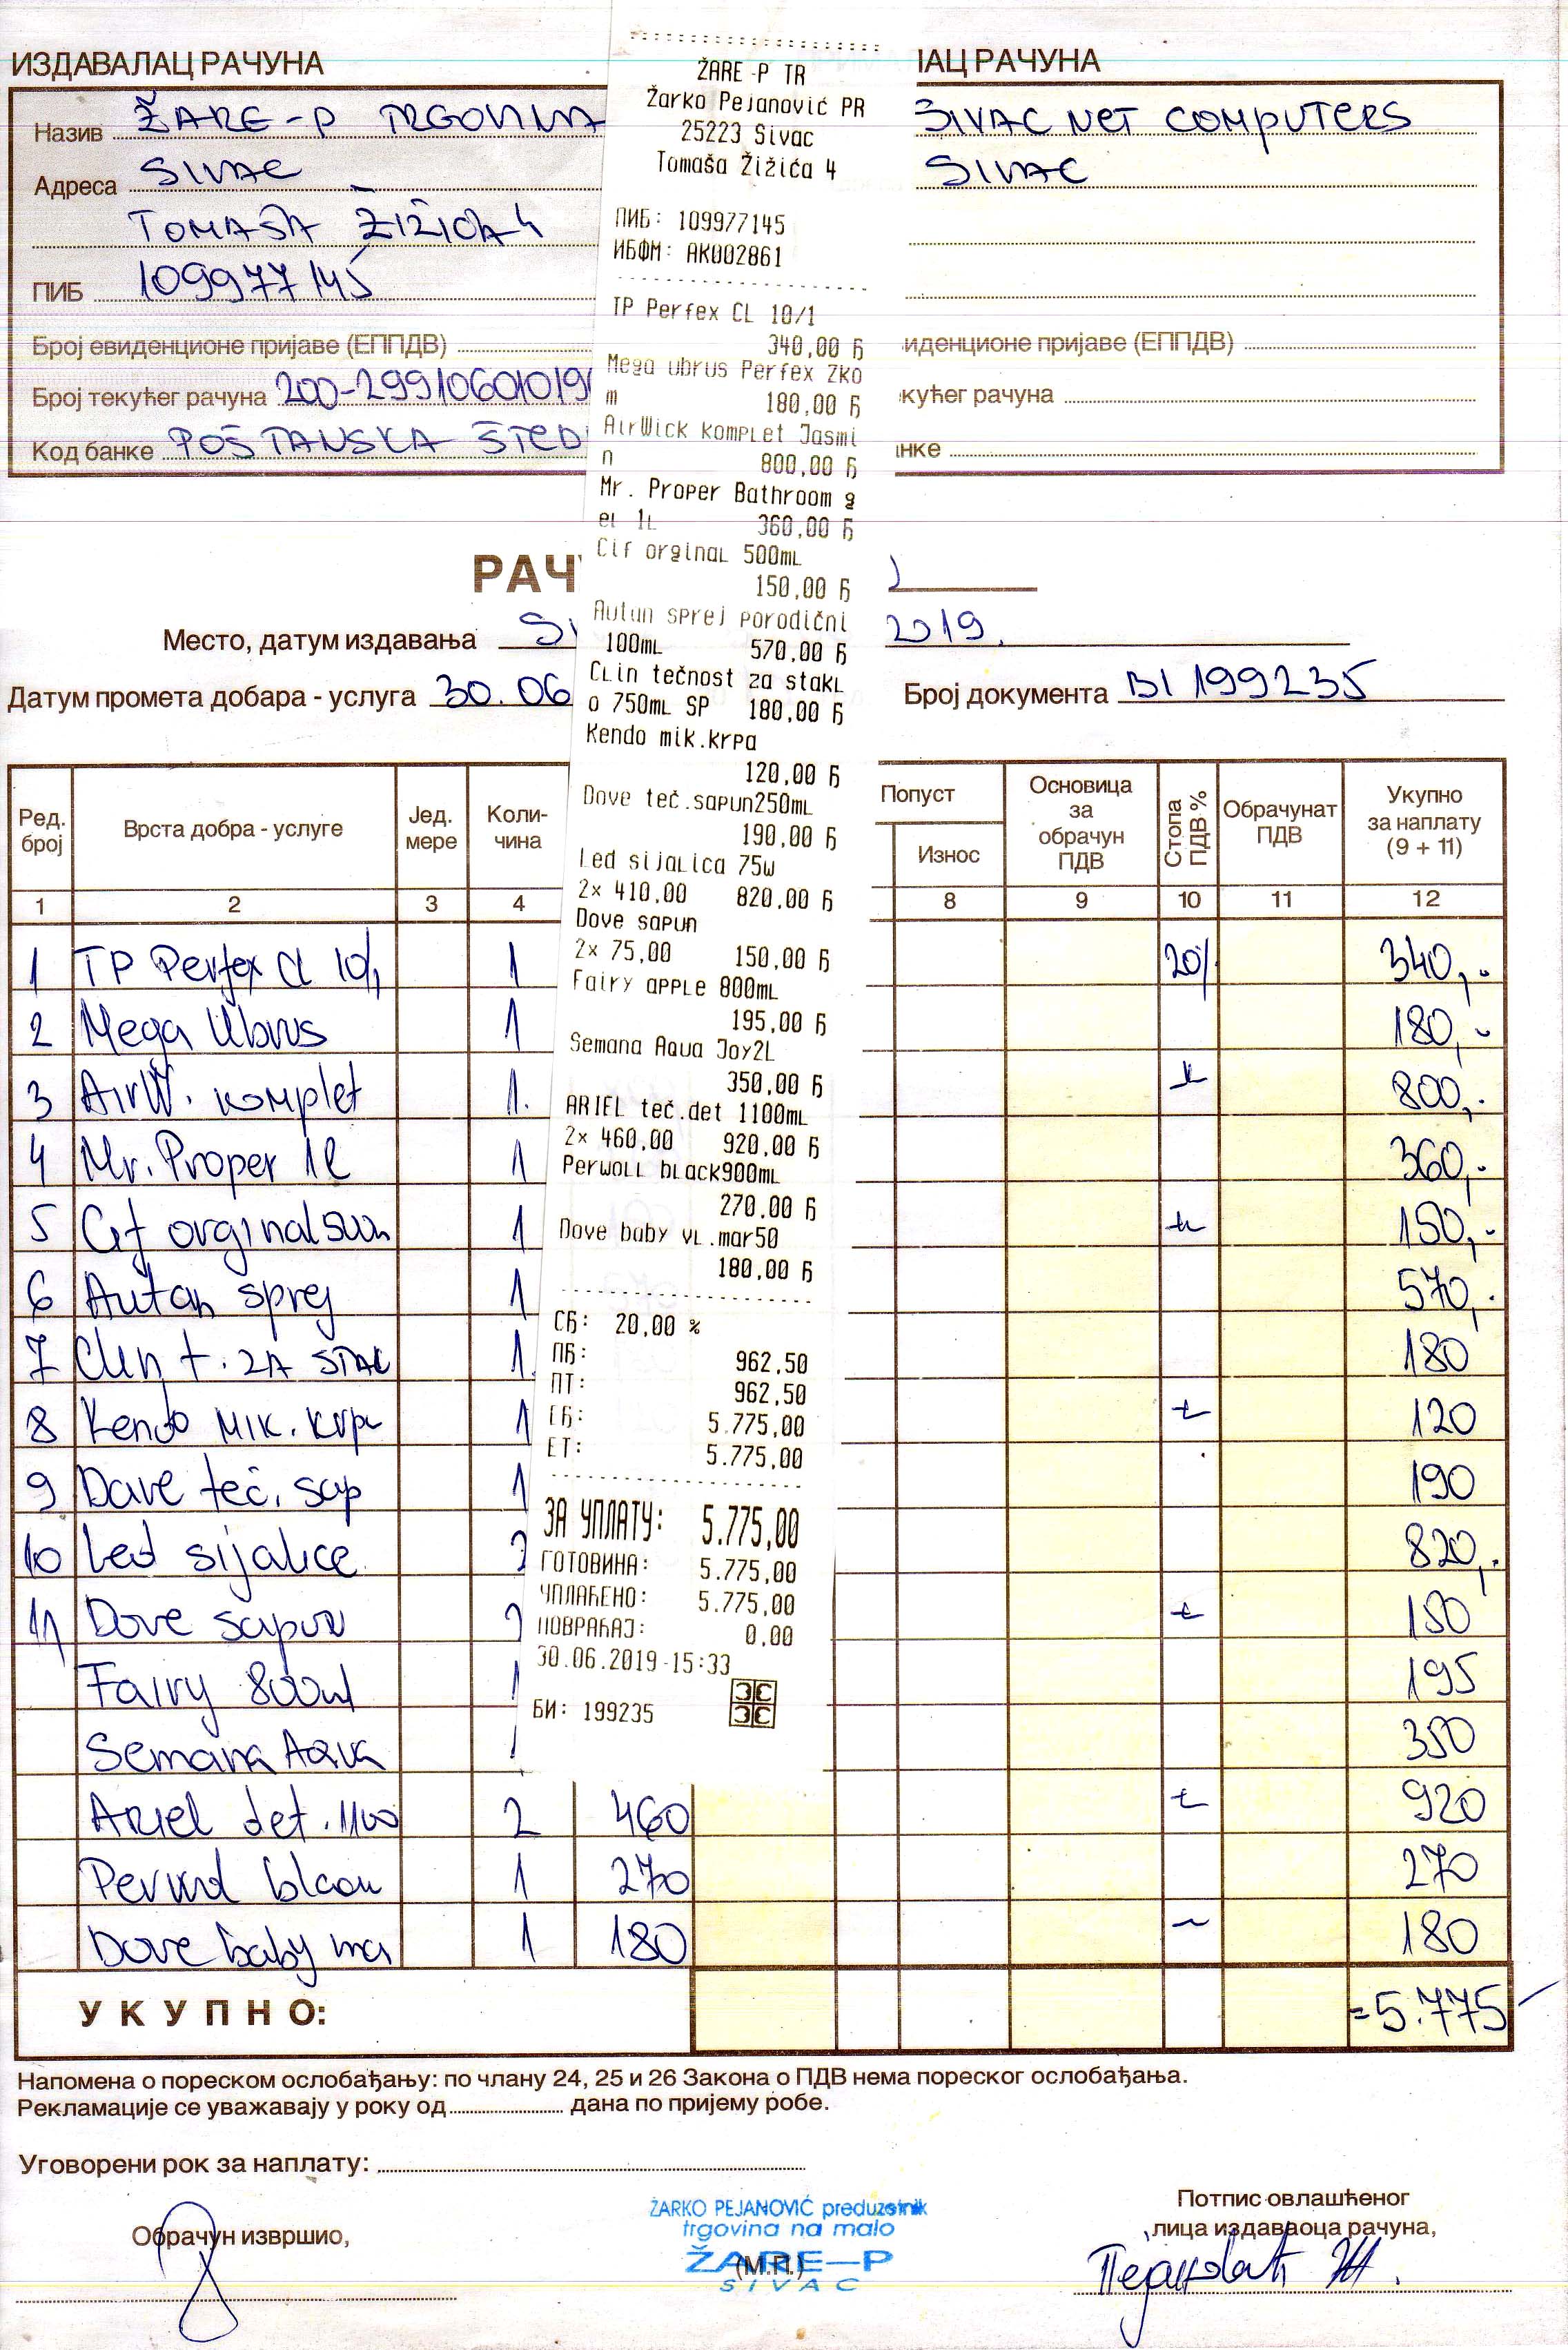 ИЗДАВАЛАЦ РАЧУНА
Назив ŽARE-P TRGOVINA
Адреса SIVAC
TOMAŠA ŽIŽIĆA 4
ПИБ 109977145
Број евиденционе пријаве (ЕППДВ)
Број текућег рачуна 200-29910601019
Код банке POŠTANSKA ŠTED
АЦ РАЧУНА
SIVAC NET COMPUTERS
SIVAC
иденционе пријаве (ЕППДВ)
кућег рачуна
нке
ŽARE-P TR
Žarko Pejanović PR
25223 Sivac
Tomaša Žižića 4
ПИБ: 109977145
ИБФМ: AK002861
TP Perfex CL 10/1
340,00 Б
Mega ubrus Perfex 2ko
m 180,00 Б
AirWick komplet Jasmi
n 800,00 Б
Mr. Proper Bathroom g
el 1L 360,00 Б
Cif orginal 500mL
150,00 Б
Autun sprej porodični
100mL 570,00 Б
Clin tečnost za stakl
o 750mL SP 180,00 Б
Kendo mik.krpa
120,00 Б
Dove teč.sapun250mL
190,00 Б
Led sijalica 75w
2x 410,00 820,00 Б
Dove sapun
2x 75,00 150,00 Б
Fairy apple 800mL
195,00 Б
Semana Aqua Joy2L
350,00 Б
ARIEL teč.det 1100mL
2x 460,00 920,00 Б
Perwoll black900mL
270,00 Б
Dove baby vl.mar50
180,00 Б
СБ: 20,00 %
ПБ: 962,50
ПТ: 962,50
ЕБ: 5.775,00
ЕТ: 5.775,00
ЗА УПЛАТУ: 5.775,00
ГОТОВИНА: 5.775,00
УПЛАЋЕНО: 5.775,00
ПОВРАЋАЈ: 0,00
30.06.2019-15:33
БИ: 199235
РАЧ
Место, датум издавања 2019.
Датум промета добара - услуга 30.06
Број документа BI 199235
Ред. број Врста добра - услуге Јед. мере Коли-чина Попуст Износ Основица за обрачун ПДВ Стопа ПДВ % Обрачунат ПДВ Укупно за наплату (9 + 11)
1 2 3 4 8 9 10 11 12
1 TP Perfex Cl 10/1 1 20% 340,-
2 Mega Ubrus 1 180,-
3 AirW. komplet 1. 800,-
4 Mr. Proper 1l 1 360,-
5 Cif orginal 1 150,-
6 Autan sprej 1 570,-
7 Clin t. ZA STAK 1. 180
8 Kendo MIK. krpa 1 120
9 Dove teč. sap 1 190
10 Led sijalice 2 820,-
11 Dove sapun 2 150
Fairy 800ml 1 195
Semana Aqua 1 350
Ariel det. 1100 2 460 920
Perwol black 1 270 270
Dove baby mar 1 180 180
УКУПНО: =5.775
Напомена о пореском ослобађању: по члану 24, 25 и 26 Закона о ПДВ нема пореског ослобађања.
Рекламације се уважавају у року од дана по пријему робе.
Уговорени рок за наплату:
Обрачун извршио,
ŽARKO PEJANOVIĆ preduzetnik
trgovina na malo
ŽARE-P
(М.П.)
SIVAC
Потпис овлашћеног
лица издаваоца рачуна,
Пејановић Ж.